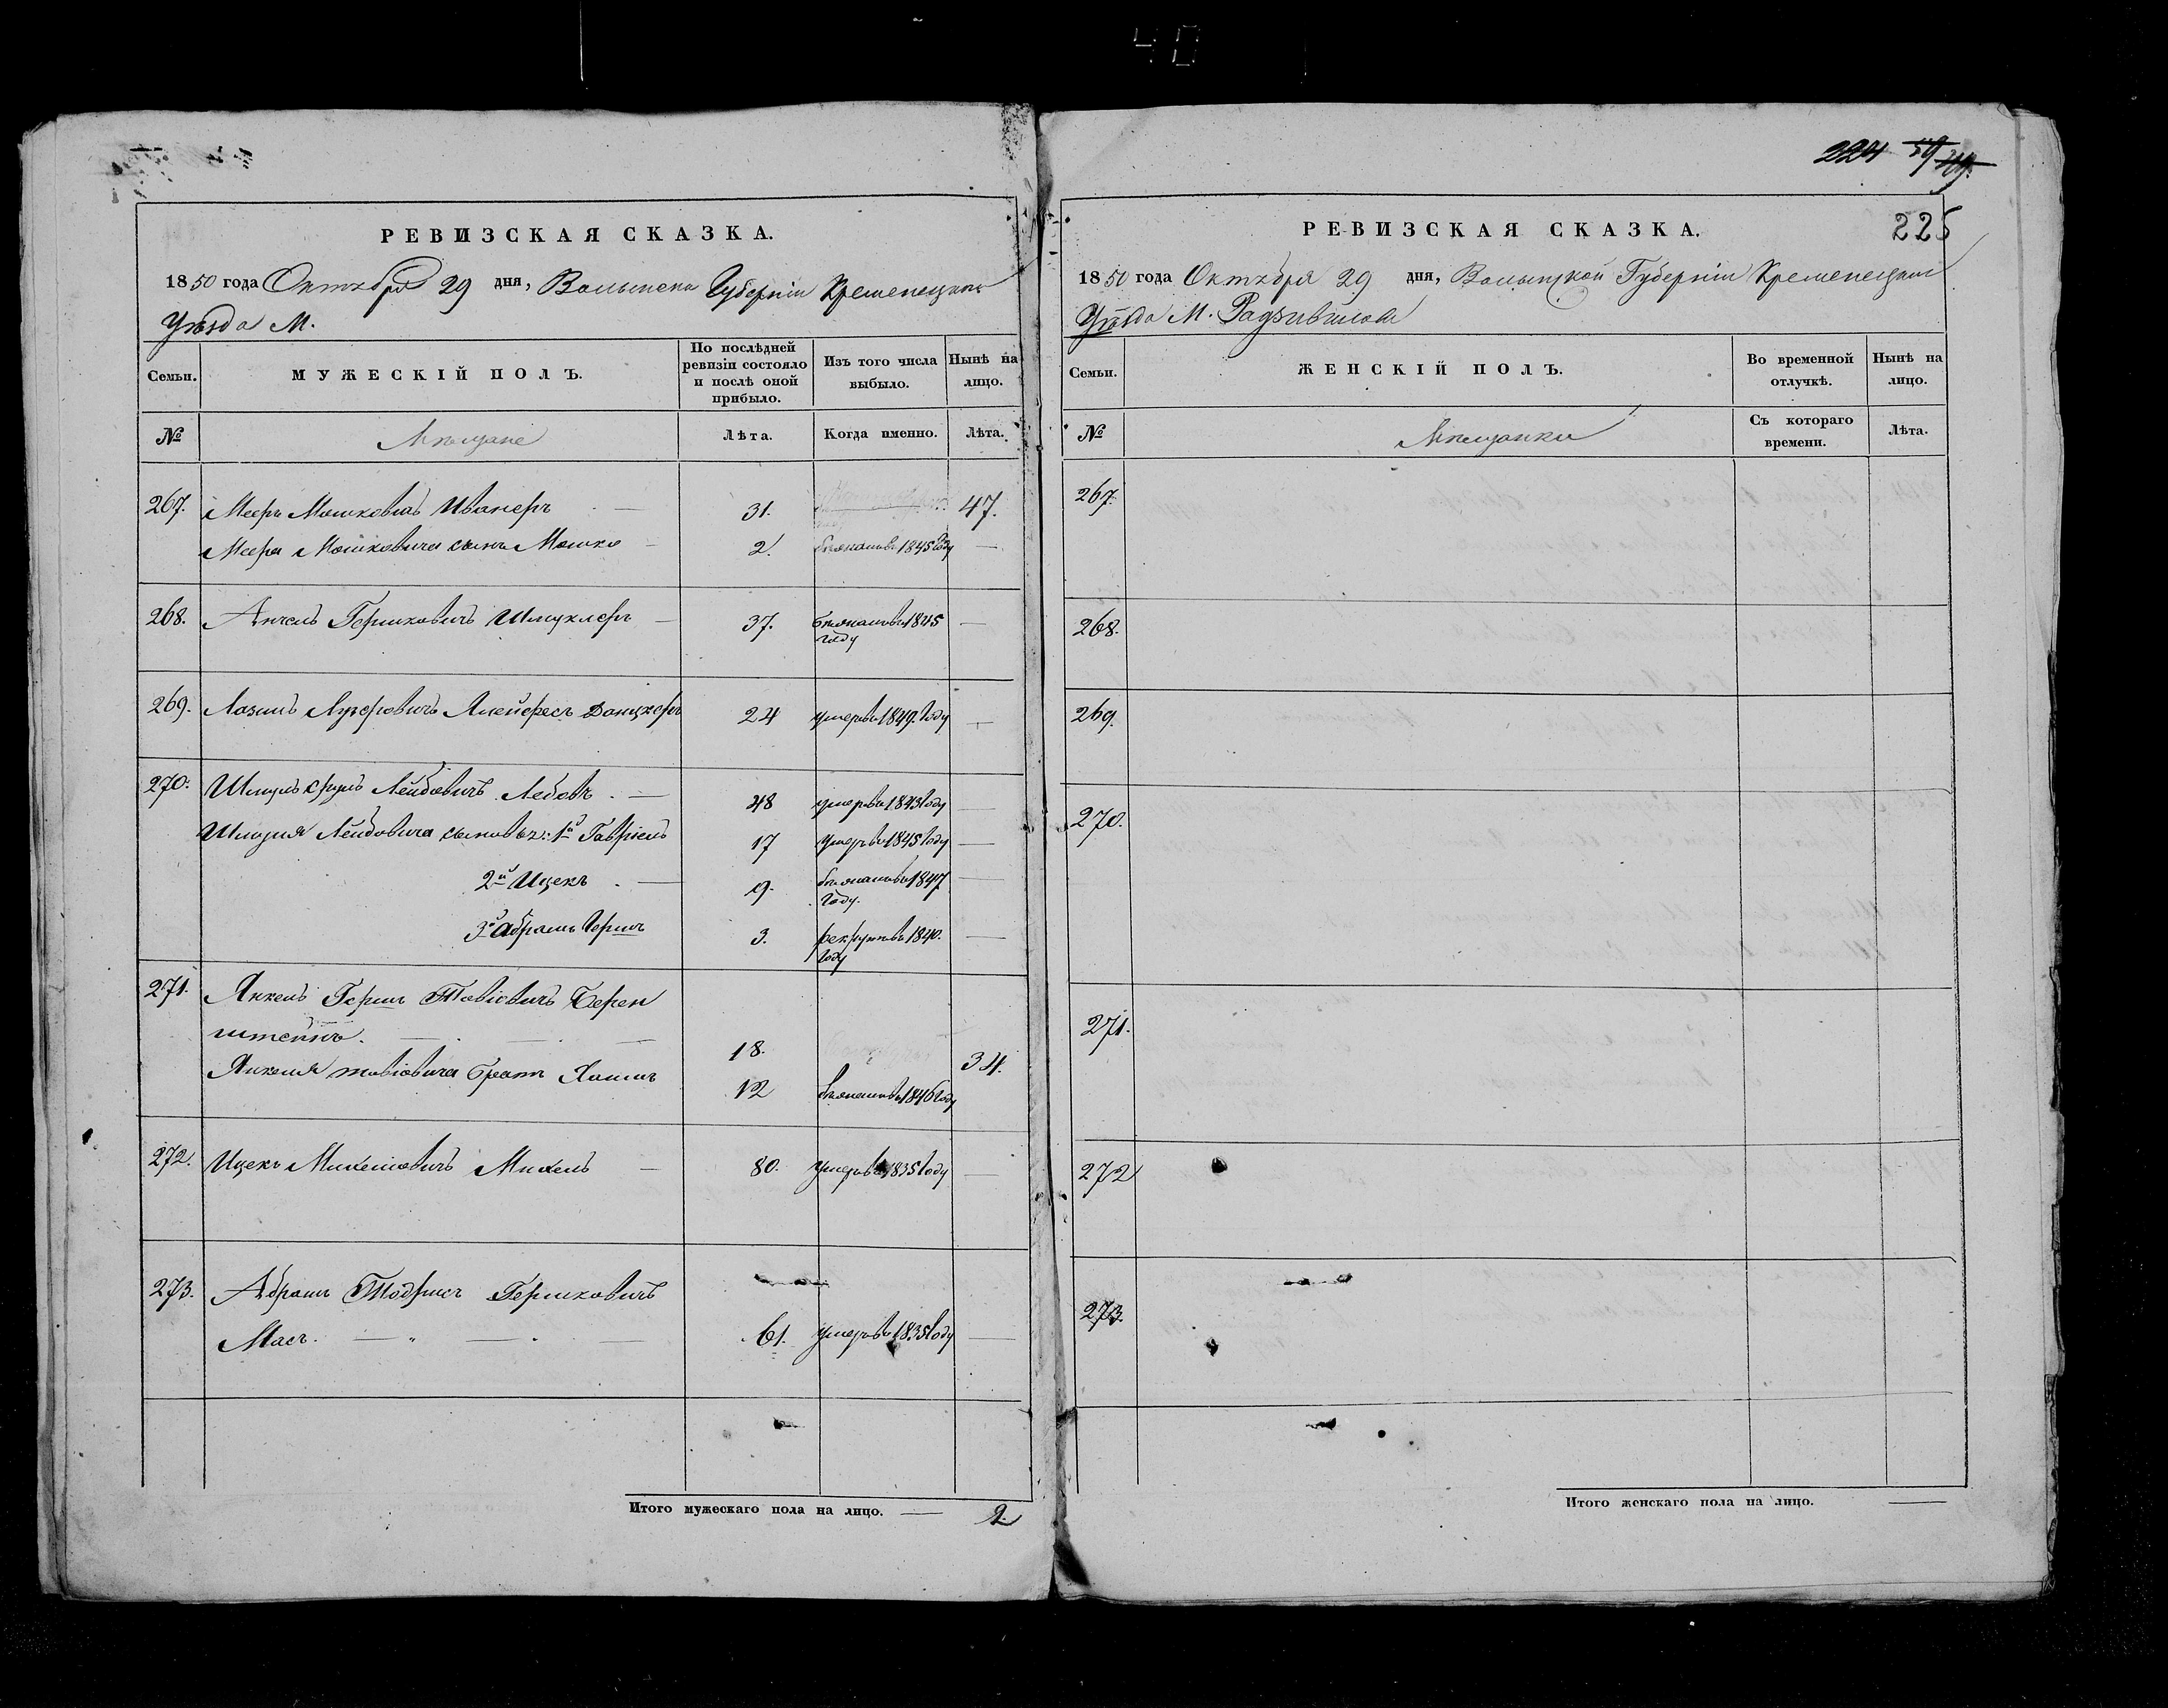 40
224 59
225
РЕВИЗСКАЯ СКАЗКА.
1850 года Октября 29 дня, Волынской Губерніи Кременецкаго
Уѣзда М.
Семьи.
МУЖЕСКІЙ ПОЛЪ.
По послѣдней ревизіи состояло и послѣ оной прибыло.
Изъ того числа выбыло.
Нынѣ на лицо.
№
Мѣщане
Лѣта.
Когда именно.
Лѣта.
267. Мееръ Мошковичъ Иванеръ — 31. 47.
Меера Мошковича сынъ Мошко — 2. бѣжалъ въ 1845 году —
268. Анчель Гершковичъ Шмуклеръ — 37. бѣжалъ въ 1845 году —
269. Лозинъ Данцкеръ 24 умеръ въ 1849. году —
270. Шмуль Лейбовичъ Лебовъ. — 48 умеръ въ 1843 году —
Шмуля Лейбовича сыновья: 1й Гавріель 17 умеръ въ 1845 году —
2й Ицекъ. — 9. бѣжалъ въ 1847 году. —
3й Абрамъ Гершъ 3. рекрутъ въ 1840. году —
271. Янкель Гершъ Товіовичъ Берен
штейнъ. — — — 18. 34.
Янкеля Товіовича братъ Хаимъ 12 бѣжалъ въ 1846 году
272. Ицекъ Михелиовичъ Михель — 80. умеръ въ 1835 году —
273. Абрамъ Тодрисъ Гершковичъ
Масъ. — „ — . — 61. умеръ въ 1835 году —
Итого мужескаго пола на лицо. — 2.
РЕВИЗСКАЯ СКАЗКА.
1850 года Октября 29 дня, Волынской Губерніи Кременецкаго
Уѣзда М. Радзивилова
Семьи.
ЖЕНСКІЙ ПОЛЪ.
Во временной отлучкѣ.
Нынѣ на лицо.
№
Мѣщанки
Съ котораго времени.
Лѣта.
267.
268.
269.
270.
271.
272
273.
Итого женскаго пола на лицо. —